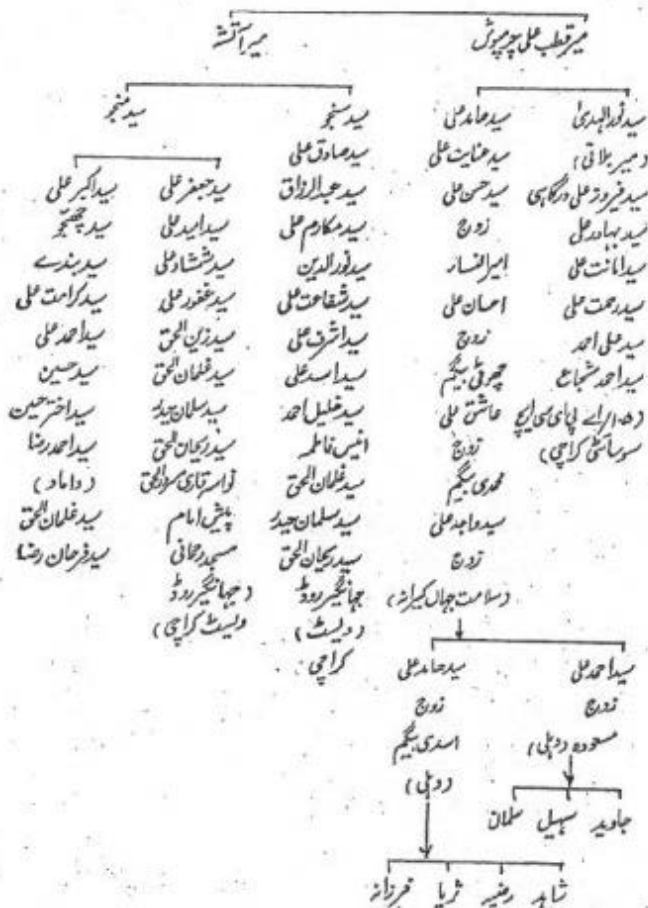 میر قطب علی چرمپوش
میر آتشہ
سید نور الہدیٰ
(میر بلاتی)
سید فیروز علی درگاہی
سید بہادر علی
سید امانت علی
سید رحمت علی
سید علی احمد
سید احمد شجاع
سوسائٹی کراچی)
سید حامد علی
سید عنایت علی
سید حسن علی
زوج
امیر النساء
احسان علی
زوج
چھوٹی بیگم
عاشق علی
زوج
محمدی بیگم
سید واجد علی
زوج
(سلامت جہاں کیرانہ)
سید احمد علی
زوج
مسعودہ (دہلی)
جاوید سہیل سلمان
سید حامد علی
زوج
اسدی بیگم
(دہلی)
شاہد رضیہ ثریا فرزانہ
سید سنجو
سید صادق علی
سید عبدالرزاق
سید مکارم علی
سید نور الدین
سید شفاعت علی
سید اشرف علی
سید اسد علی
سید خلیل احمد
انیس فاطمہ
سید غلمان الحق
سید سلمان حیدر
سید ریحان الحق
جہانگیر روڈ
(ویسٹ)
کراچی
سید منجو
سید جعفر علی
سید امید علی
سید شمشاد علی
سید غفور علی
سید زین الحق
سید غلمان الحق
سید سلمان حیدر
سید ریحان الحق
نواسہ قاری سرور الحق
پیش امام
مسجد رحمانی
(جہانگیر روڈ
ویسٹ کراچی)
سید اکبر علی
سید چھجو
سید بندے
سید کرامت علی
سید احمد علی
سید حسین
سید اختر حسین
سید احمد رضا
(داماد)
سید غلمان الحق
سید فرحان رضا